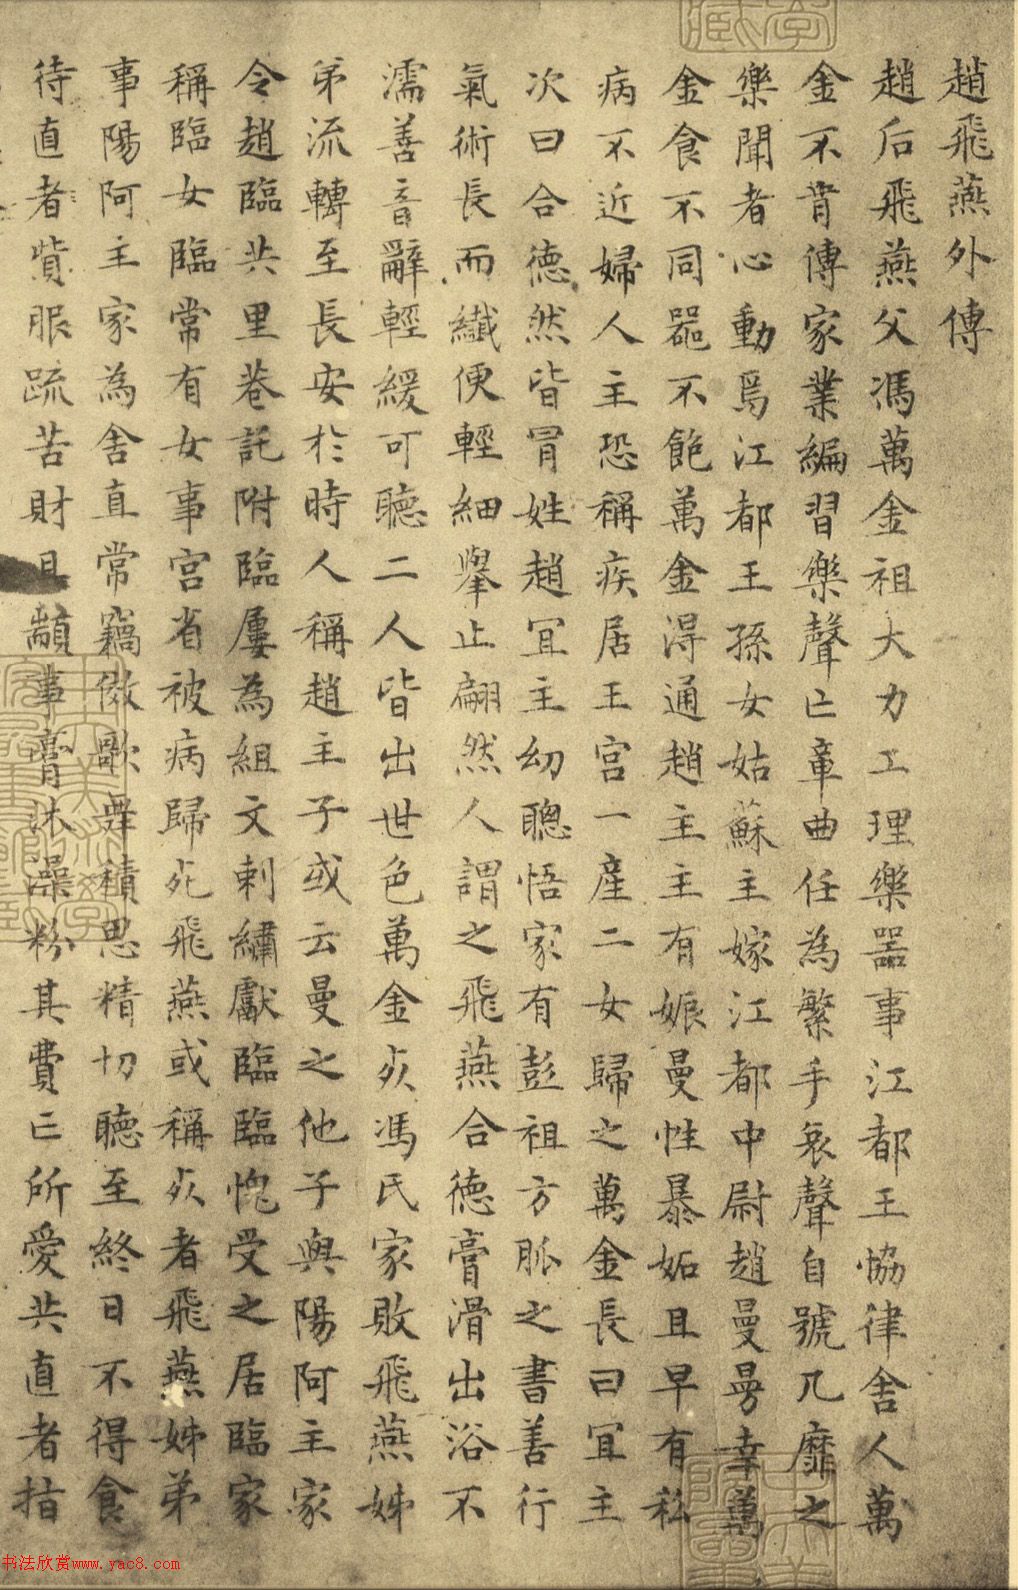 趙飛燕外傳
趙后飛燕父馮萬金祖大力工理樂器事江都王協律舍人萬
金不肯傳家業編習樂聲亡章曲任為繁手哀聲自號凡靡之
樂聞者心動焉江都王孫女姑蘇主嫁江都中尉趙曼曼幸萬
金食不同器不飽萬金得通趙主主有娠曼性暴妬且早有私
病不近婦人主恐稱疾居王宮一產二女歸之萬金長曰宜主
次曰合德然皆冒姓趙宜主幼聰悟家有彭祖方脈之書善行
氣術長而纖便輕細舉止翩然人謂之飛燕合德膏滑出浴不
濡善音辭輕緩可聽二人皆出世色萬金死馮氏家敗飛燕姊
弟流轉至長安於時人稱趙主子或云曼之他子與陽阿主家
令趙臨共里巷託附臨屢為組文刺繡獻臨臨愧受之居臨家
稱臨女臨常有女事宮省被病歸死飛燕或稱死者飛燕姊弟
事陽阿主家為舍直常竊倣歌舞積思精切聽至終日不得食
待直者貲服疏苦財且顓事膏沐澡粉其費亡所愛共直者指
书法欣赏www.yac8.com